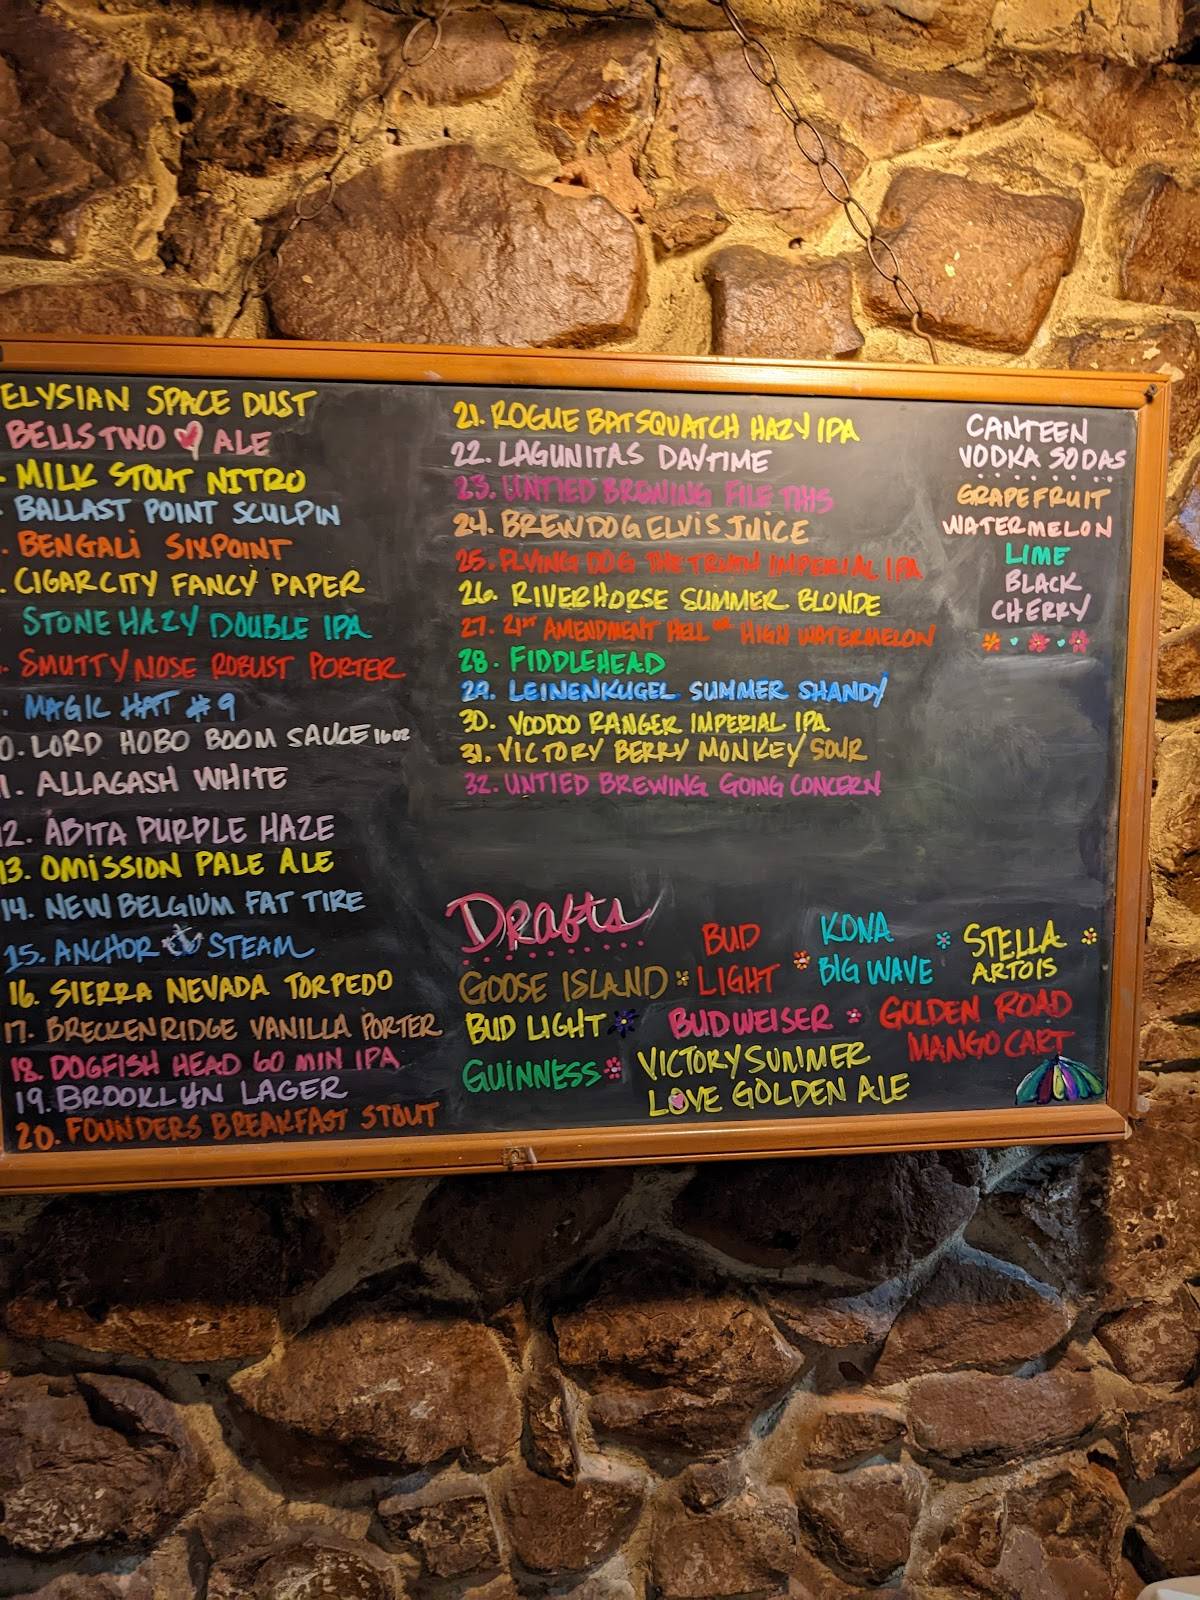 ELYSIAN SPACE DUST
BELLS TWO ALE
. MILK STOUT NITRO
. BALLAST POINT SCULPIN
. BENGALI SIXPOINT
. CIGAR CITY FANCY PAPER
STONE HAZY DOUBLE IPA
. SMUTTYNOSE ROBUST PORTER
. MAGIC HAT #9
0. LORD HOBO BOOM SAUCE 16oz
1. ALLAGASH WHITE
12. ABITA PURPLE HAZE
13. OMISSION PALE ALE
14. NEW BELGIUM FAT TIRE
15. ANCHOR STEAM
16. SIERRA NEVADA TORPEDO
17. BRECKENRIDGE VANILLA PORTER
18. DOGFISH HEAD 60 MIN IPA
19. BROOKLYN LAGER
20. FOUNDERS BREAKFAST STOUT
21. ROGUE BATSQUATCH HAZY IPA
22. LAGUNITAS DAYTIME
23. UNTIED BREWING FILE THIS
24. BREWDOG ELVIS JUICE
25. FLYING DOG THE TRUTH IMPERIAL IPA
26. RIVERHORSE SUMMER BLONDE
27. 21st AMENDMENT HELL OR HIGH WATERMELON
28. FIDDLEHEAD
29. LEINENKUGEL SUMMER SHANDY
30. VOODOO RANGER IMPERIAL IPA
31. VICTORY BERRY MONKEY SOUR
32. UNTIED BREWING GOING CONCERN
CANTEEN
VODKA SODAS
GRAPEFRUIT
WATERMELON
LIME
BLACK
CHERRY
Drafts
GOOSE ISLAND
BUD
LIGHT
KONA
BIG WAVE
STELLA
ARTOIS
BUD LIGHT
BUDWEISER
GOLDEN ROAD
MANGO CART
GUINNESS
VICTORY SUMMER
LOVE GOLDEN ALE